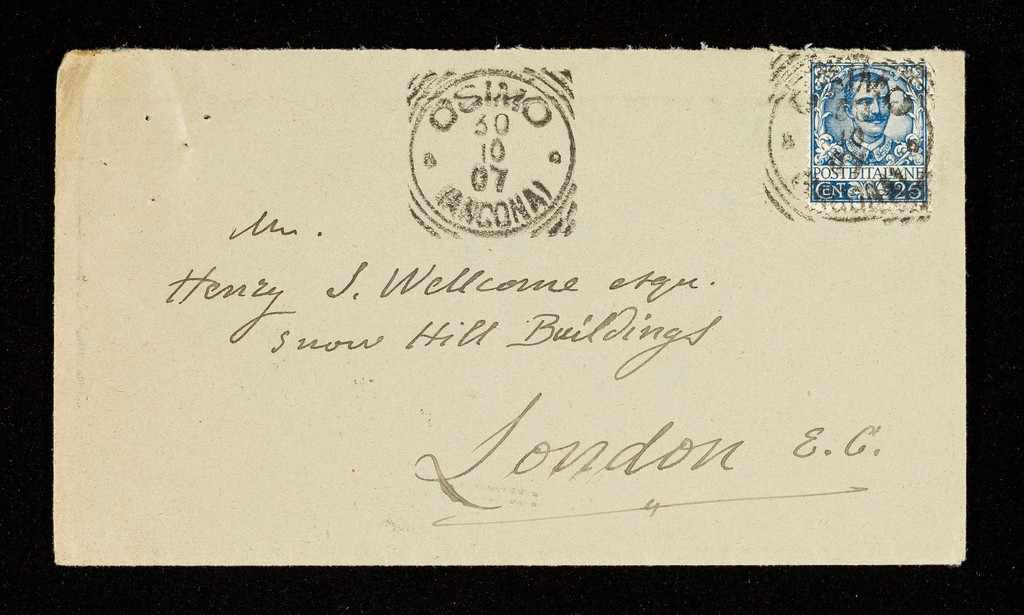 OSIMO
30
10
07
(ANCONA)
OSIMO
30
10
07
POSTE ITALIANE
CEN 25
Mr.
Henry S. Wellcome esqu.
Snow Hill Buildings
London E.C.